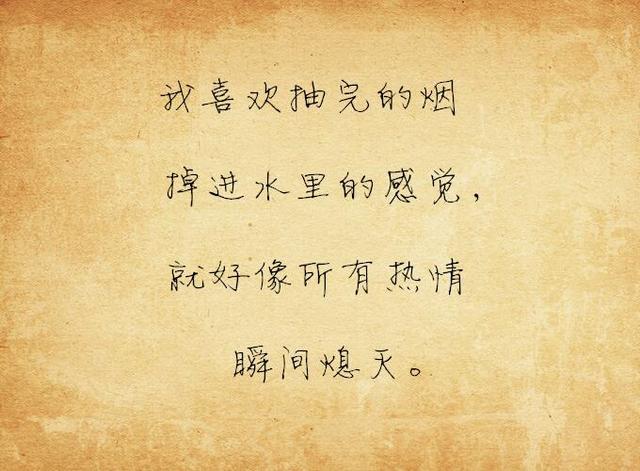 我喜欢抽完的烟
掉进水里的感觉，
就好像所有热情
瞬间熄灭。